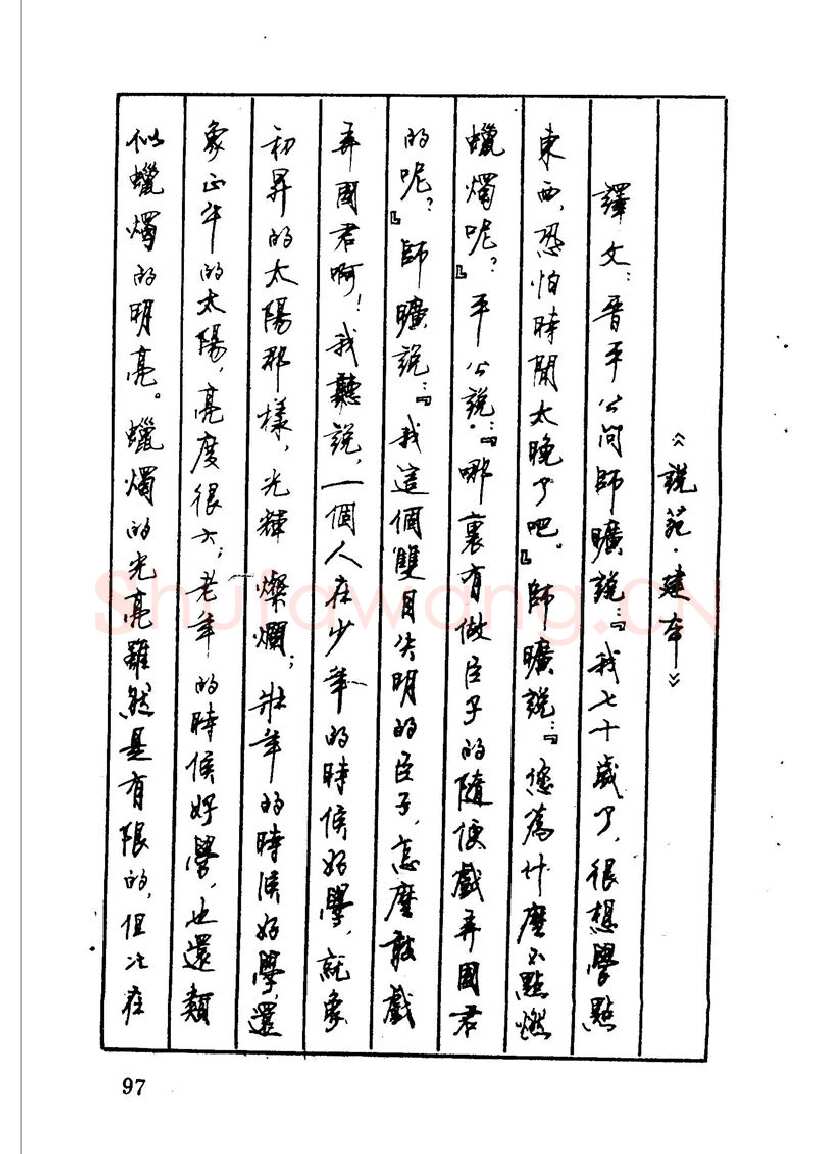 《説苑·建本》
譯文：晋平公問師曠説：『我七十歲了，很想學點
東西，恐怕時間太晚了吧。』師曠説：『您為什麼不點燃
蠟燭呢？』平公説：『哪裏有做臣子的隨便戲弄國君
的呢？』師曠説：『我這個雙目失明的臣子，怎麼敢戲
弄國君啊！我聽説，一個人在少年的時候好學，就象
初昇的太陽那樣，光輝燦爛；壯年的時候好學，還
象正午的太陽，亮度很大；老年的時候好學，也還類
似蠟燭的明亮。蠟燭的光亮雖然是有限的，但比在
97
Shufawang.CN